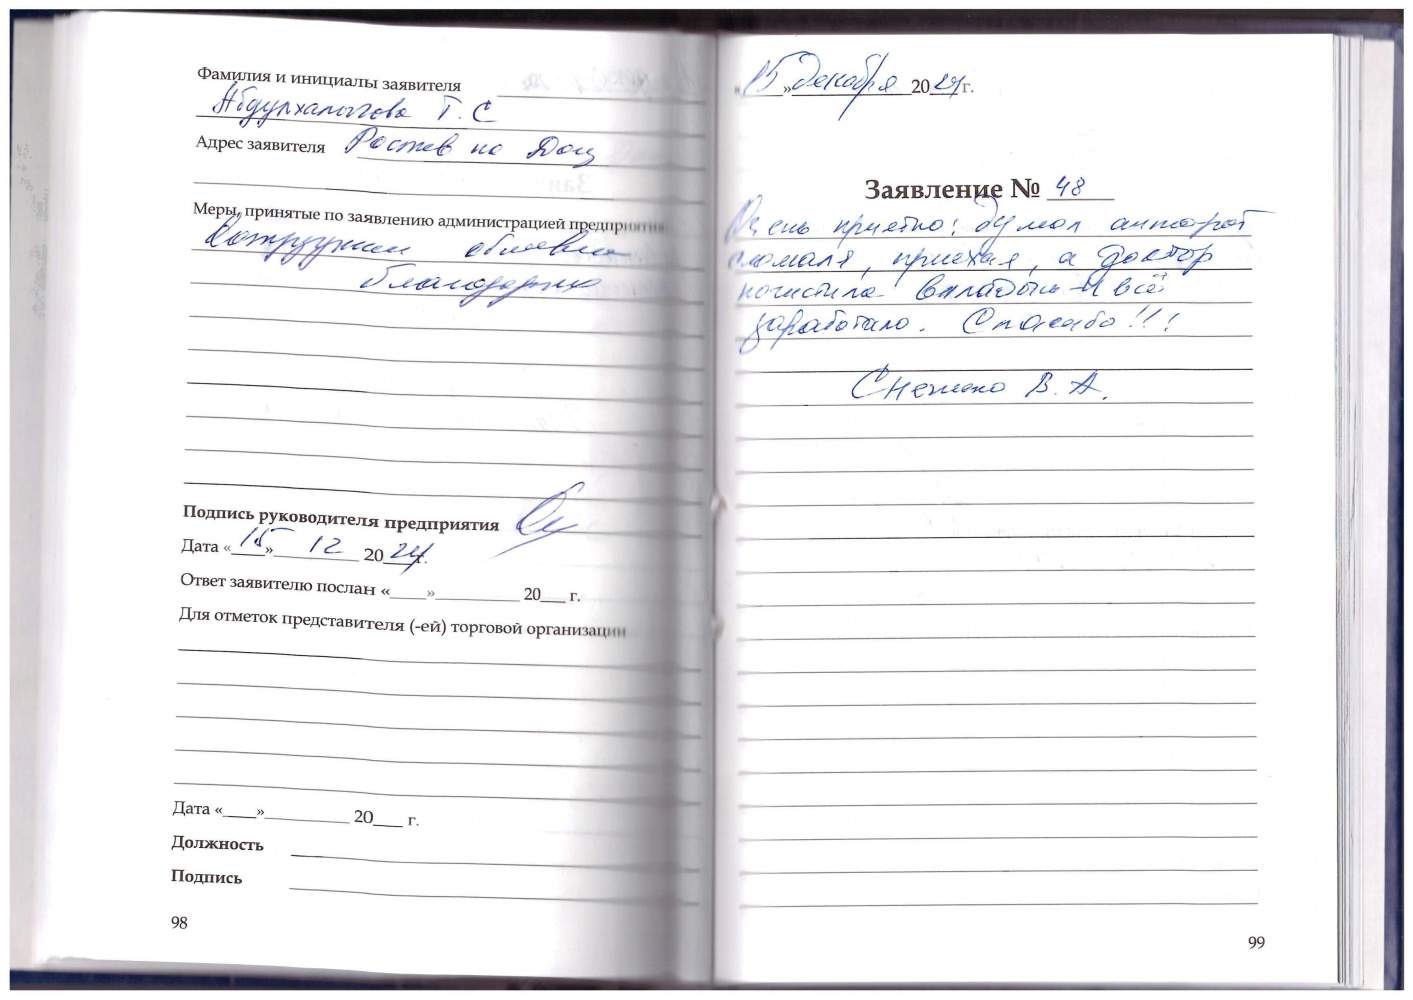 Фамилия и инициалы заявителя
Абдулхалыгова Т. С
Адрес заявителя Ростов на Дону
Меры, принятые по заявлению администрацией предприятия
Сотруднику объявлена
благодарность
Подпись руководителя предприятия
Дата «15» 12 2024 г.
Ответ заявителю послан «____»__________ 20___ г.
Для отметок представителя (-ей) торговой организации
Дата «____»__________ 20___ г.
Должность
Подпись
98
«15» декабря 2024 г.
Заявление № 48
Очень приятно! Думал аппарат
сломался, приехал, а доктор
почистила вкладыш и всё
заработало. Спасибо!!!
В. А.
99